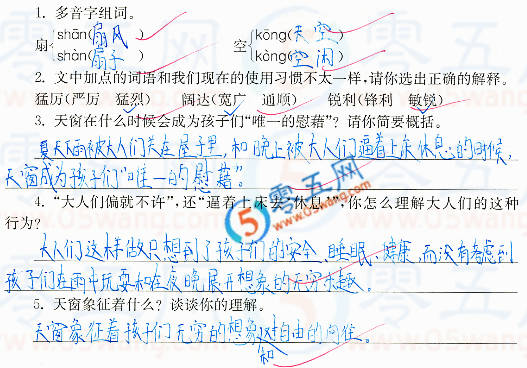 1. 多音字组词。
扇 shān(扇风) 空 kōng(天空)
shàn(扇子) kòng(空闲)
2. 文中加点的词语和我们现在的使用习惯不太一样,请你选出正确的解释。
猛厉(严厉 猛烈) 阔达(宽广 通顺) 锐利(锋利 敏锐)
3. 天窗在什么时候会成为孩子们“唯一的慰藉”?请你简要概括。
夏天下雨被大人们关在屋子里,和晚上被大人们逼着上床休息的时候,
天窗成为孩子们“唯一的慰藉”。
4. “大人们偏就不许”,还“逼着上床去‘休息’”,你怎么理解大人们的这种
行为?
大人们这样做只想到了孩子们的安全、睡眠、健康,而没有考虑到
孩子们在雨中玩耍和在夜晚展开想象的无穷乐趣。
5. 天窗象征着什么?谈谈你的理解。
天窗象征着孩子们无穷的想象和对自由的向往。
零五网
www.05wang.com